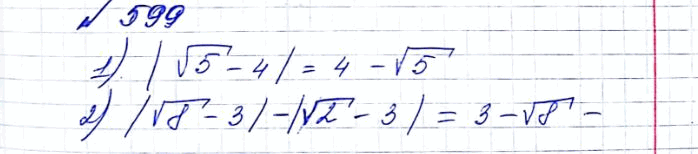 № 599
1) |√5 - 4| = 4 - √5
2) |√8 - 3| - |√2 - 3| = 3 - √8 -